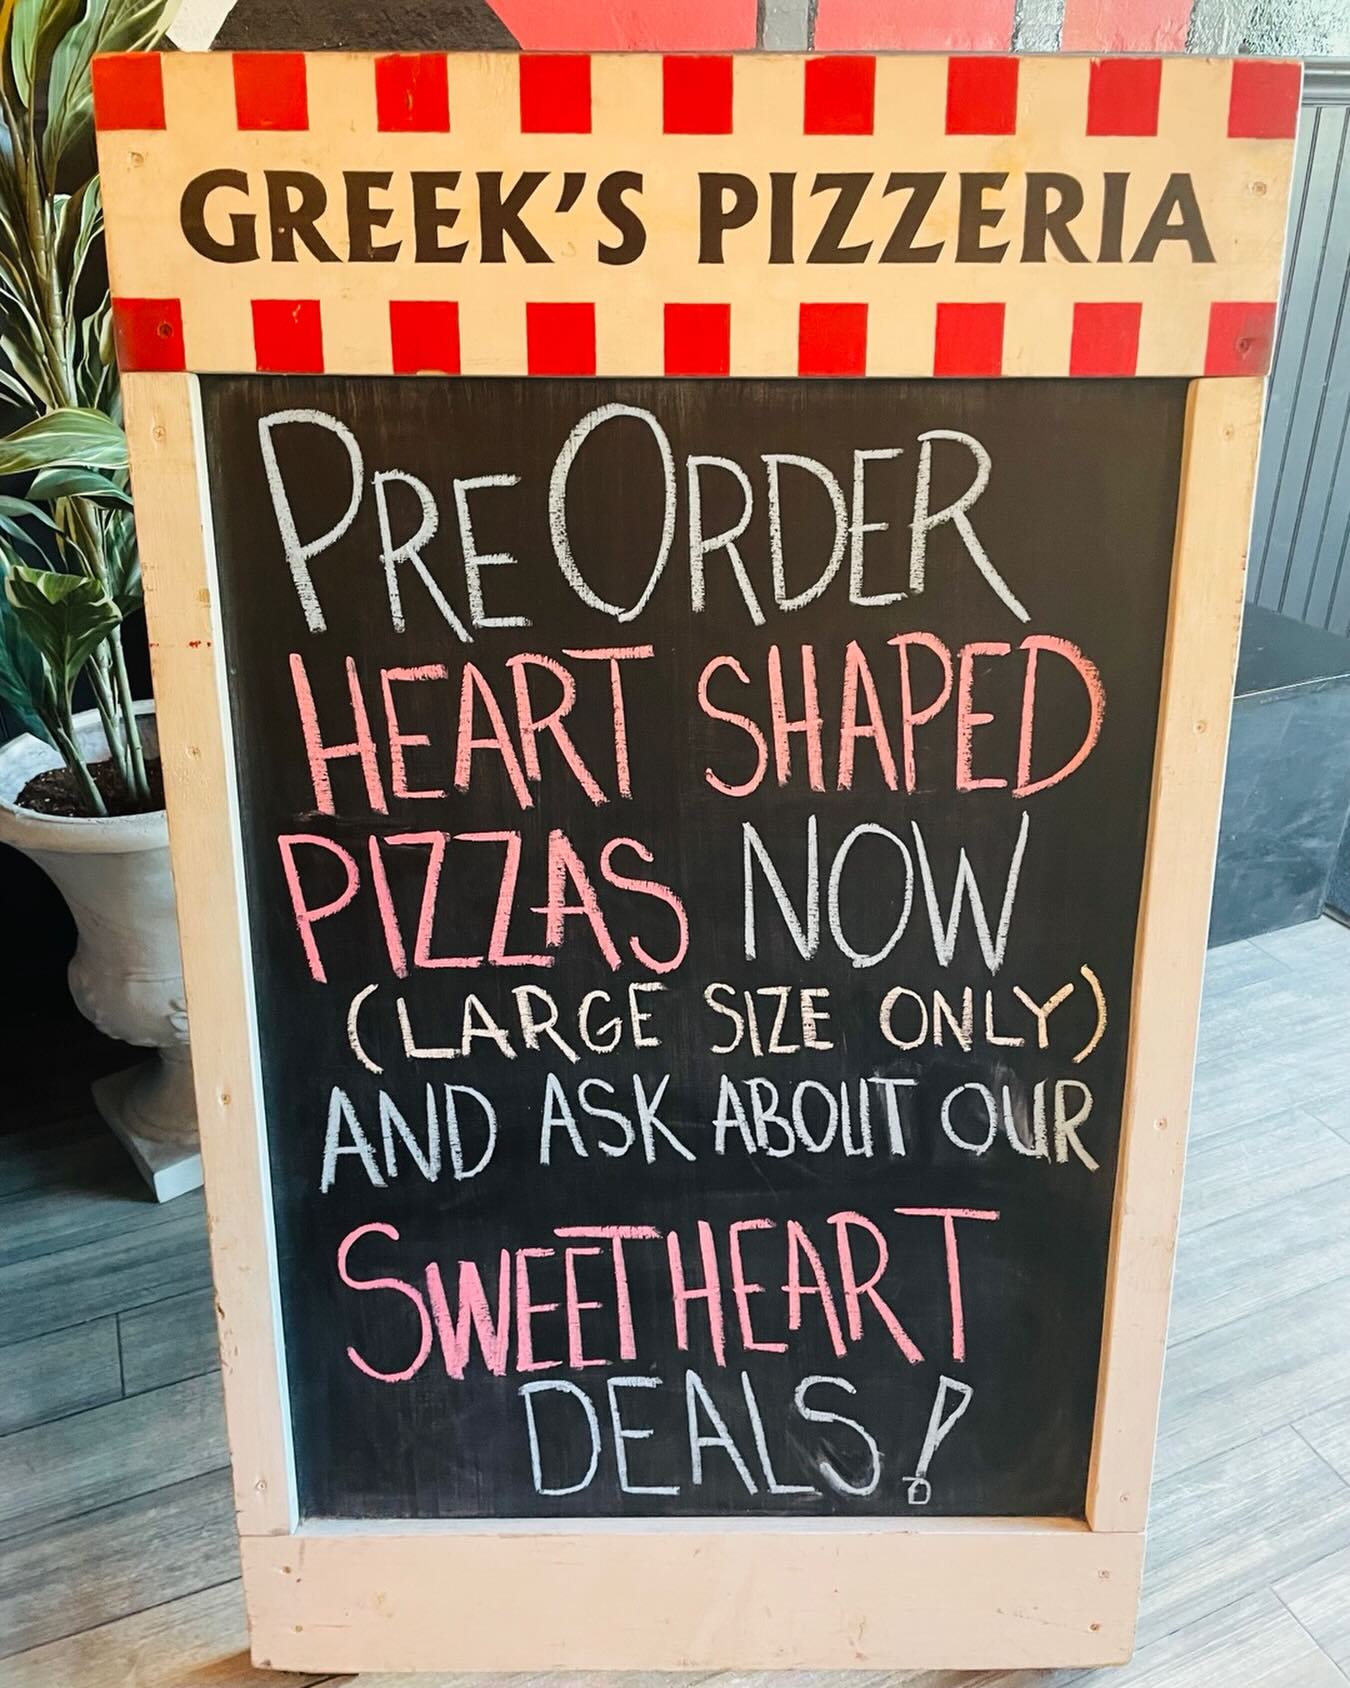 GREEK'S PIZZERIA
PRE ORDER
HEART SHAPED
PIZZAS NOW
(LARGE SIZE ONLY)
AND ASK ABOUT OUR
SWEETHEART
DEALS!